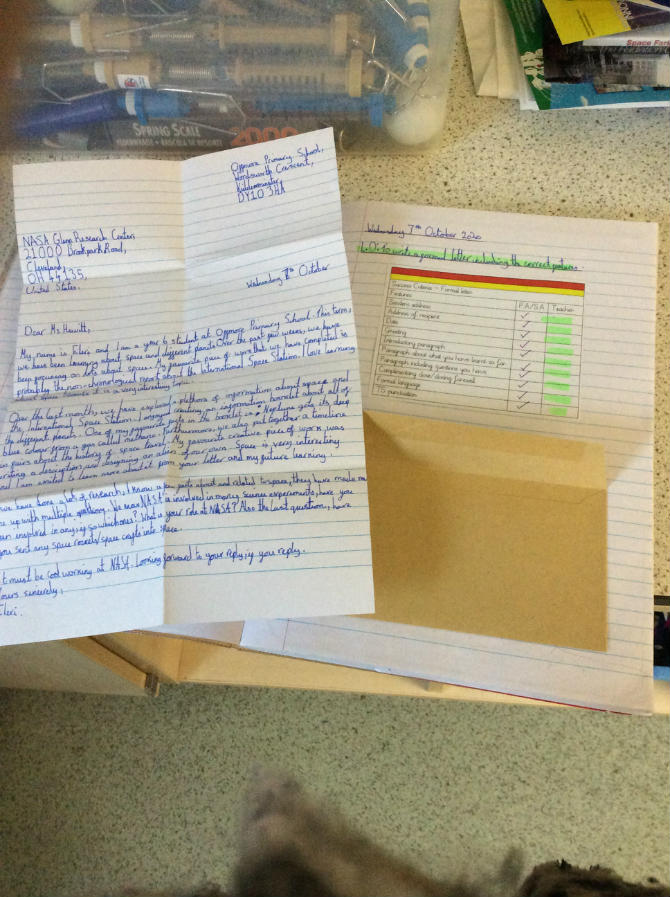 SPRING SCALE
2000
Space
Offmore Primary School,
Wordsworth Crescent,
Kidderminster,
DY10 3HA
NASA Glenn Research Center,
21000 Brookpark Road,
Cleveland,
OH 44135,
United States.
Wednesday 7th October
Dear Ms Hewitt,
My name is Eleri and I am a year 6 student at Offmore Primary School. This term,
we have been learning about space and different planets. Over the past few weeks, we have
been focusing on facts about space. My favourite piece of work that we have completed is
probably the non-chronological report about the International Space Station. I love learning
about space because it is a very interesting topic.
Over the last month, we have explored a plethora of information about space and
the International Space Station. I enjoyed creating an information booklet about all of
the different planets. One of my favourite facts in the booklet is: Neptune gets its deep
blue colour from a gas called methane. Furthermore, we also put together a timeline
in pairs about the history of space travel. My favourite creative piece of work was
writing a description and designing an alien of your own. Space is very interesting
and I am excited to learn more about it from your letter and my future learning.
we have done a lot of research, I know a few facts about and related to space, they have made me
come up with multiple questions. We know NASA is involved in many science experiments, have you
been inspired in any; if so which ones? What is your role at NASA? Also the last question, have
you sent any space rockets/space crafts into space.
It must be cool working at NASA. Looking forward to your reply, if you reply.
Yours sincerely,
Eleri.
Wednesday 7th October 2020
L.O: To write a formal letter including the correct features.
Success Criteria - Formal letter
Features P.A/S.A Teacher
Senders address
Address of recipient
Date
Greeting
Introductory paragraph
Paragraph about what you have learnt so far
Paragraph including questions you have
Complimentary close/closing farewell
Formal language
Y6 punctuation